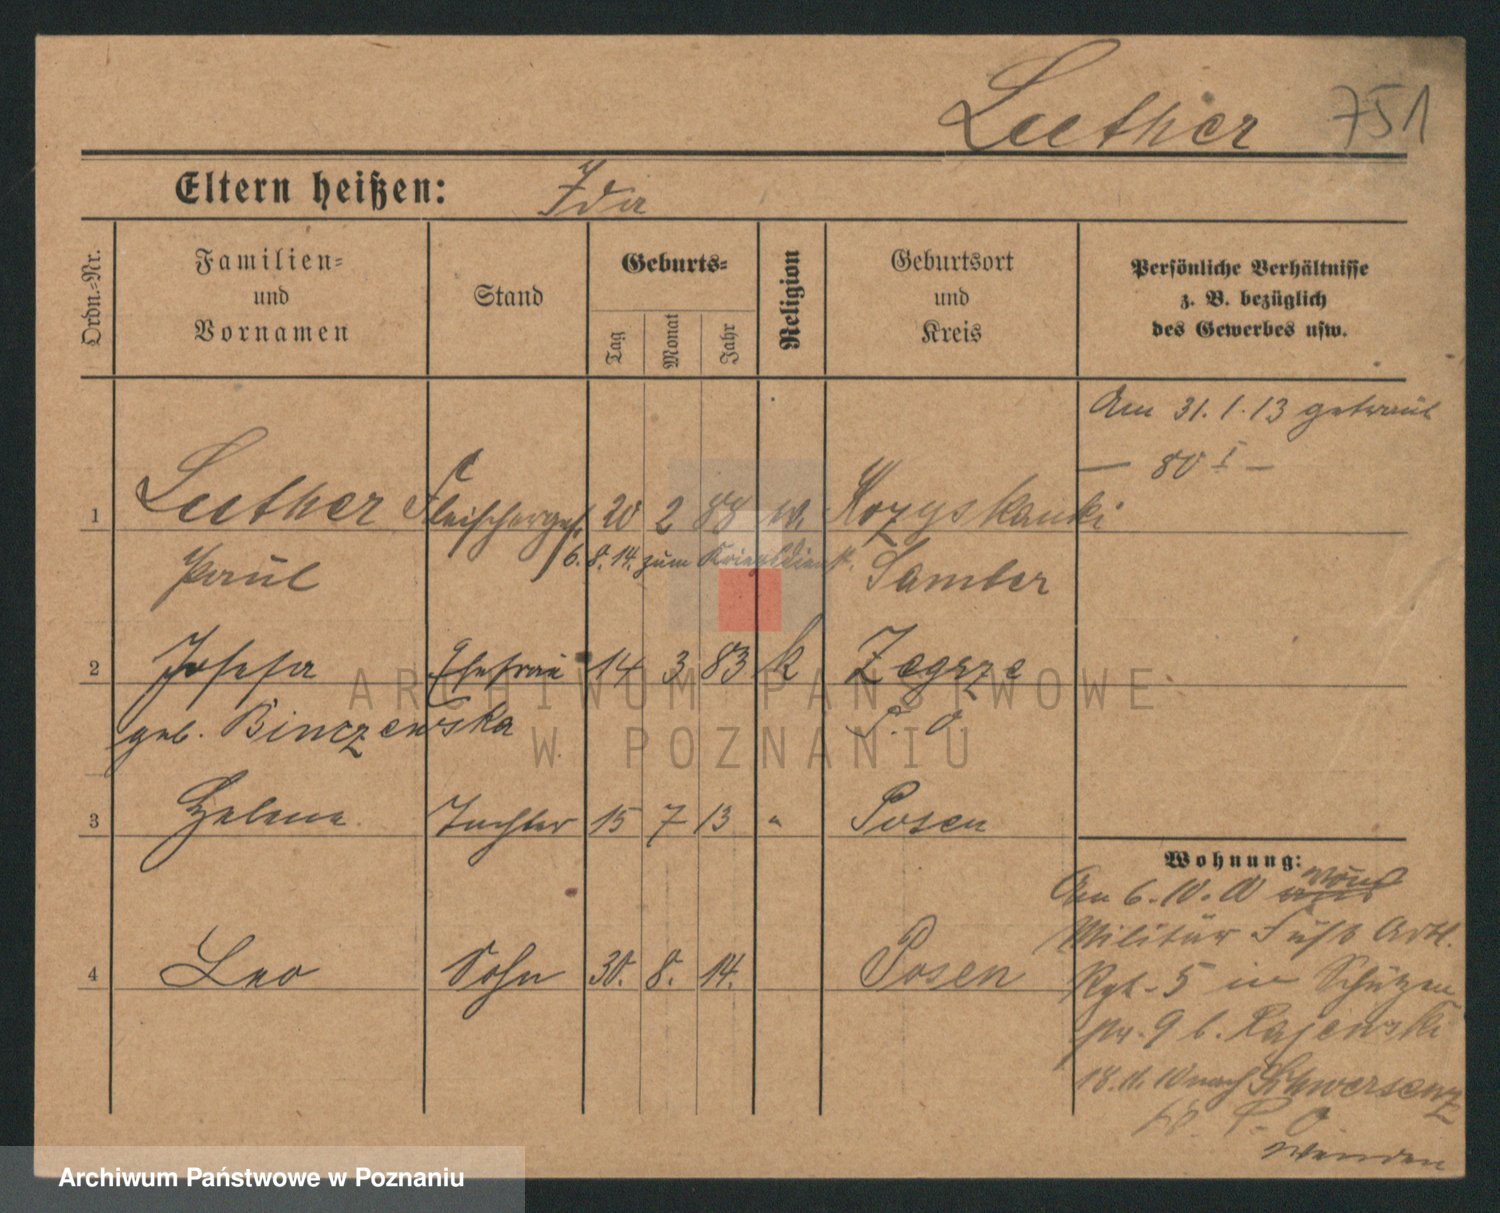 Luther 751
Eltern heißen: Ida
Ordn.-Nr.
Familien- und Vornamen
Stand
Geburts-
Tag Monat Jahr
Religion
Geburtsort und Kreis
Persönliche Verhältnisse
z. B. bezüglich
des Gewerbes usw.
Am 31. 1. 13 getraut
— 80 I —
1 Luther Fleischerges. 20 2 88
6. 8. 14. zum Kriegsdienst.
Paul Samter
2 Josefa Ehefrau 14 3 83 k Zegrze
geb. Binczewska P. O
3 Helene Tochter 15 7 13 " Posen
4 Leo Sohn 30. 8. 14. Posen
Wohnung:
Am 6. 10. 10 vom
Militär Fußb Artl.
Rgt. 5 in Schützen
str. 9 b. Rajewski
18. 11. 10 nach Schwersenz
P. O
wenden
ARCHIWUM PAŃSTWOWE
W POZNANIU
Archiwum Państwowe w Poznaniu